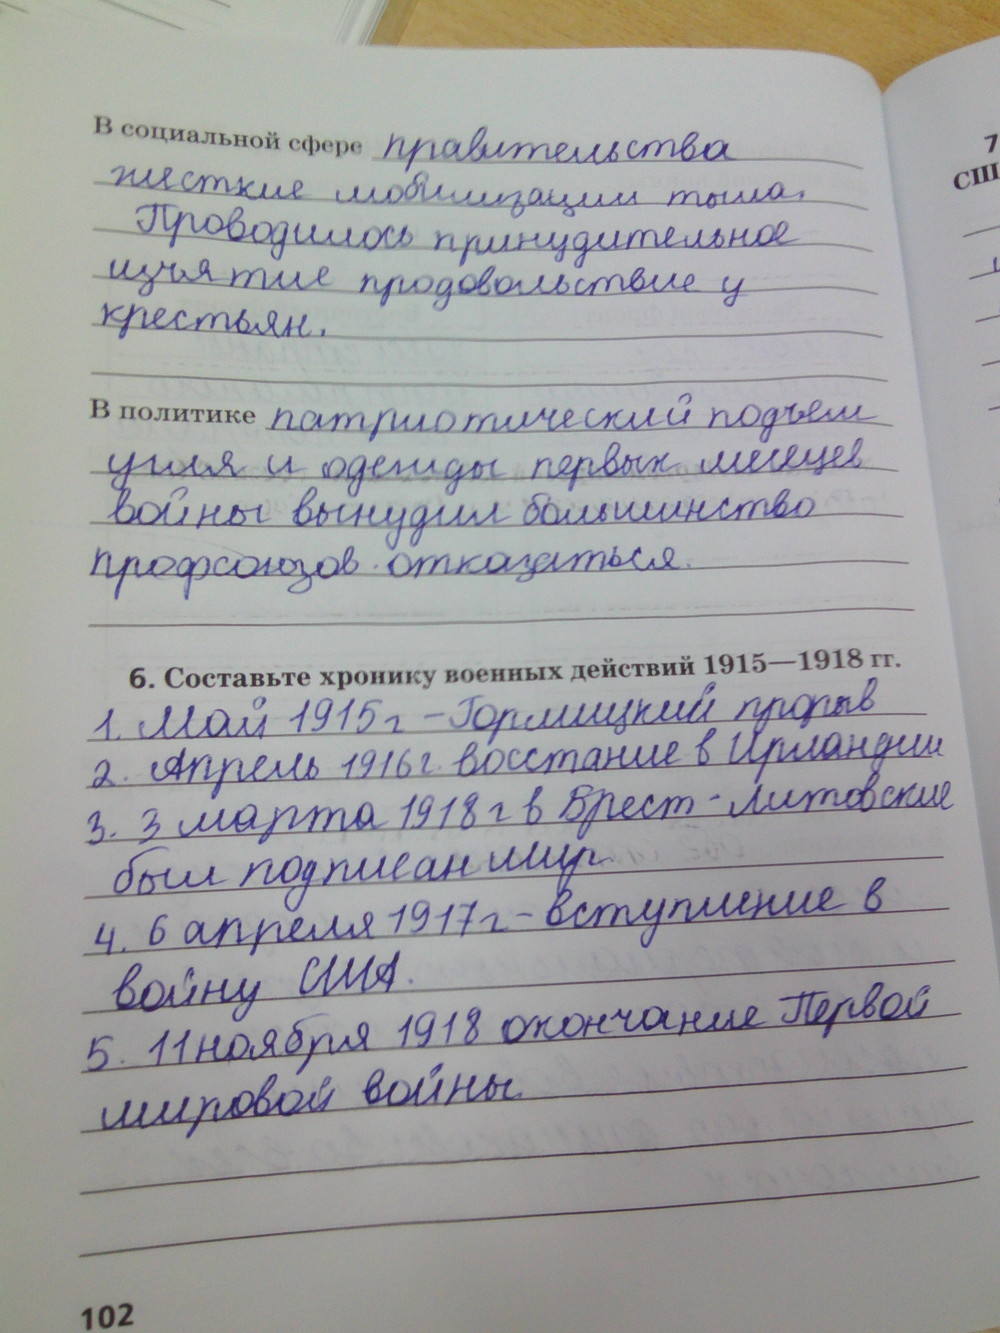 В социальной сфере правительства
жесткие мобилизации тыла.
Проводилось принудительное
изъятие продовольствие у
крестьян.
В политике патриотический подъем
угля и одежды первых месяцев
войны вынудил большинство
профсоюзов отказаться.
6. Составьте хронику военных действий 1915—1918 гг.
1. Май 1915г - Гормицкий прорыв
2. Апрель 1916г. восстание в Ирландии
3. 3 марта 1918 г в Брест-Литовские
был подписан мир.
4. 6 апреля 1917г - вступление в
войну США.
5. 11 ноября 1918 окончание Первой
мировой войны.
102
7
СШ